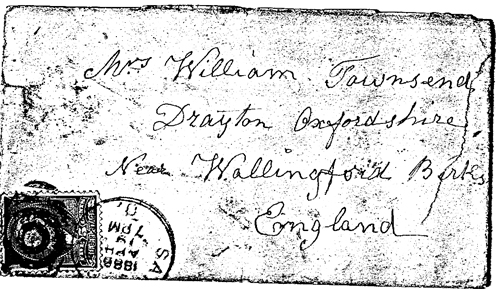 Mrs William Townsend
Drayton Oxfordshire
Near Wallingford Berks
England
SA
1888
APR
19
7PM